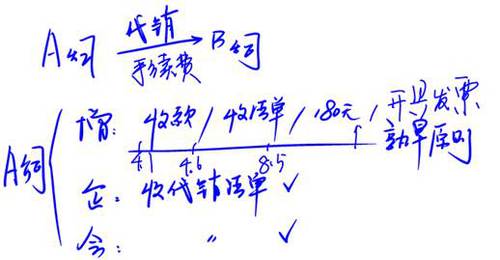 A公司 代销 B公司
手续费
增: 收款 / 收清单 / 180天 / 开具发票
A公司 4.1 4.6 8.5 孰早原则
企: 收代销清单 ✓
会: 〃 ✓